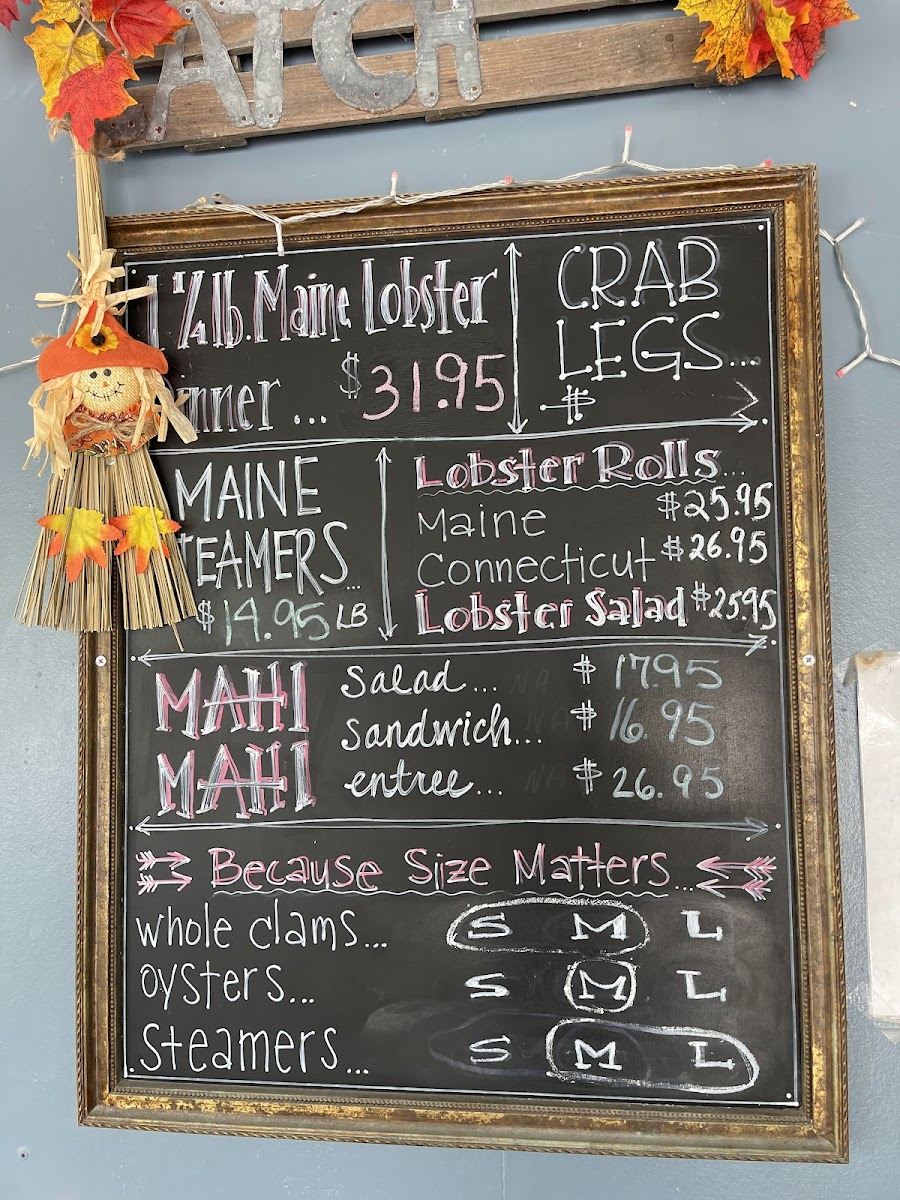 ATCH
1 1/4 lb. Maine Lobster
nner ... $31.95
CRAB
LEGS...
$
MAINE
TEAMERS...
$14.95 LB
Lobster Rolls...
Maine $25.95
Connecticut $26.95
Lobster Salad $25.95
MAHI
MAHI
salad... $17.95
sandwich... $16.95
entree... $26.95
Because Size Matters...
whole clams... S M L
oysters... S M L
steamers... S M L